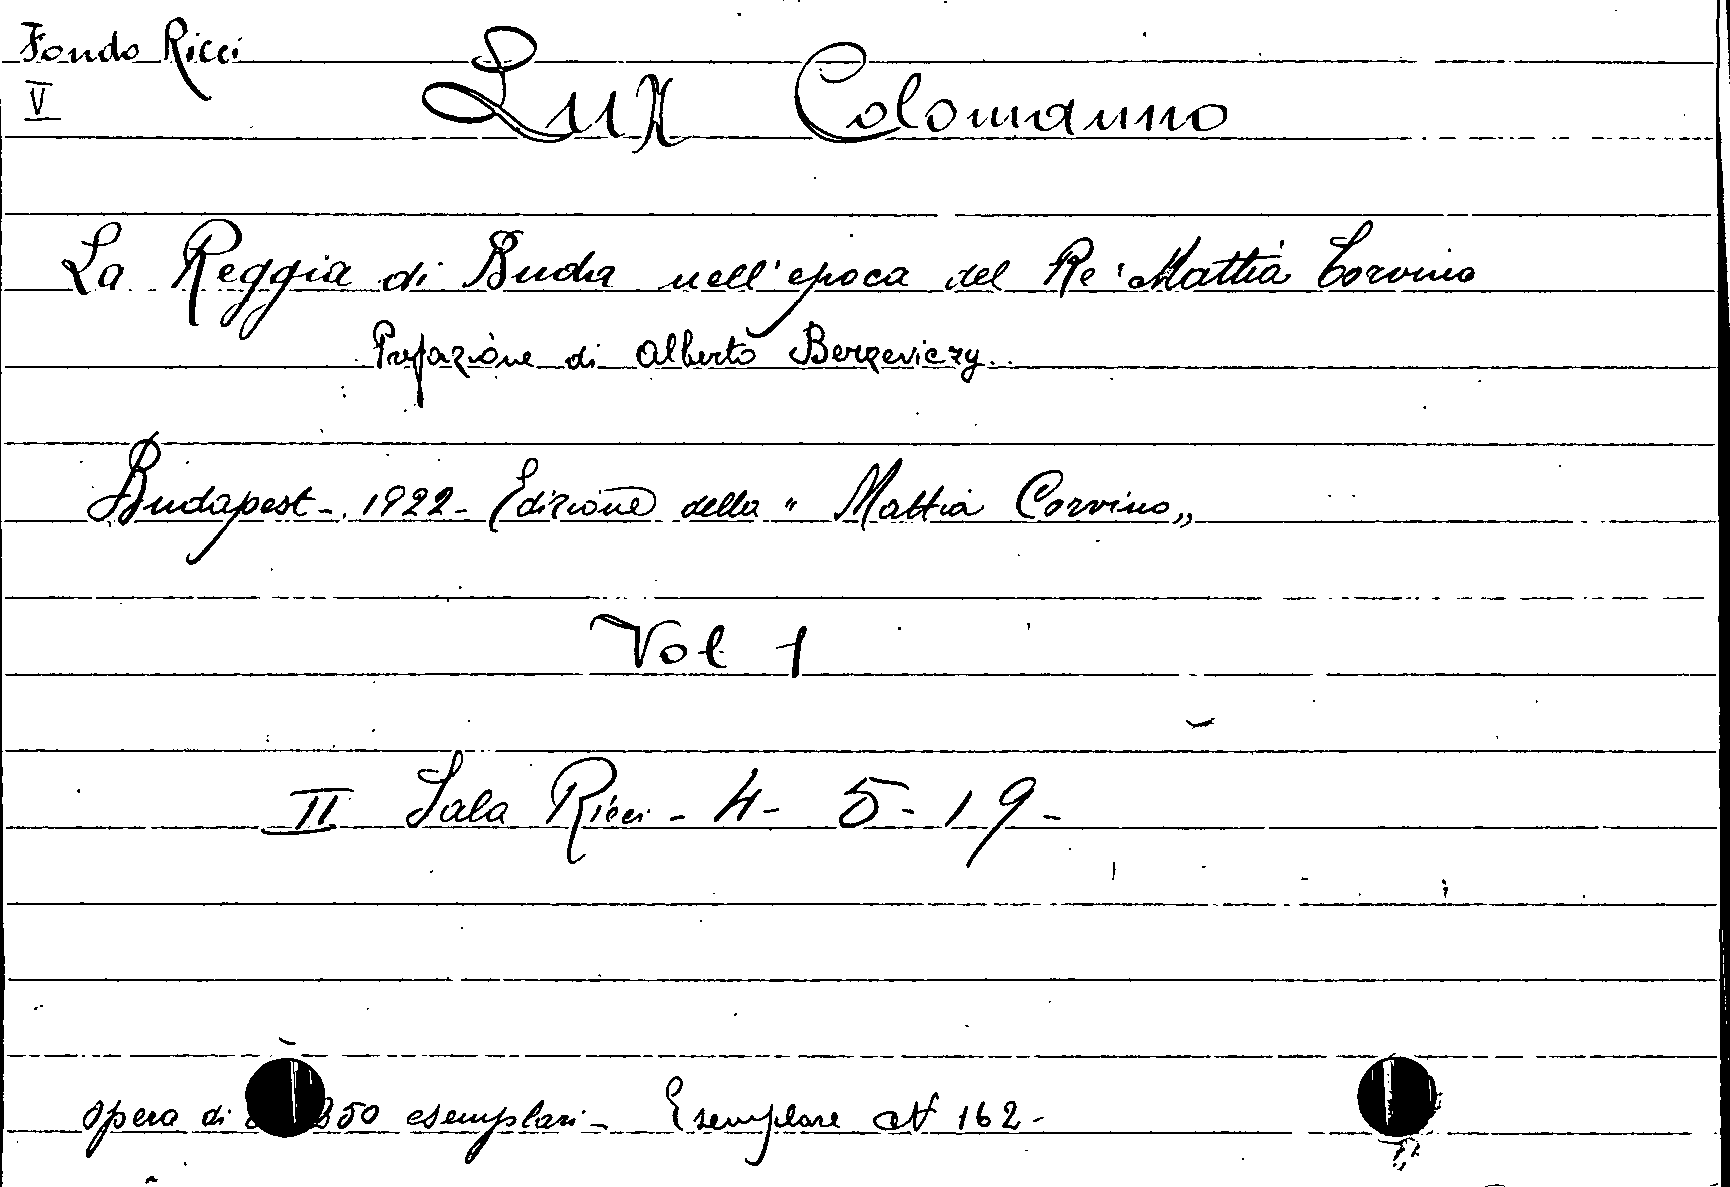 Fondo Ricci
V
Lux Colomanno
La Reggia di Buda nell'epoca del Re Mattia Corvino
Prefazione di Alberto Berzeviczy.
Budapest - 1922 - Edizione della "Mattia Corvino"
Vol 1
II Sala Ricci - 4 - 5 - 19 -
opera di 350 esemplari - Esemplare N 162 -